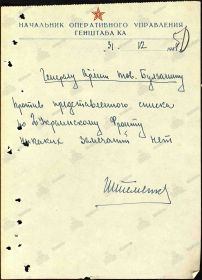 НАЧАЛЬНИК ОПЕРАТИВНОГО УПРАВЛЕНИЯ
ГЕНШТАБА КА
31. 12
Генералу Армии тов. Булганину
Против представленного списка
по 2 Украинскому Фронту
никаких замечаний нет
Штеменко